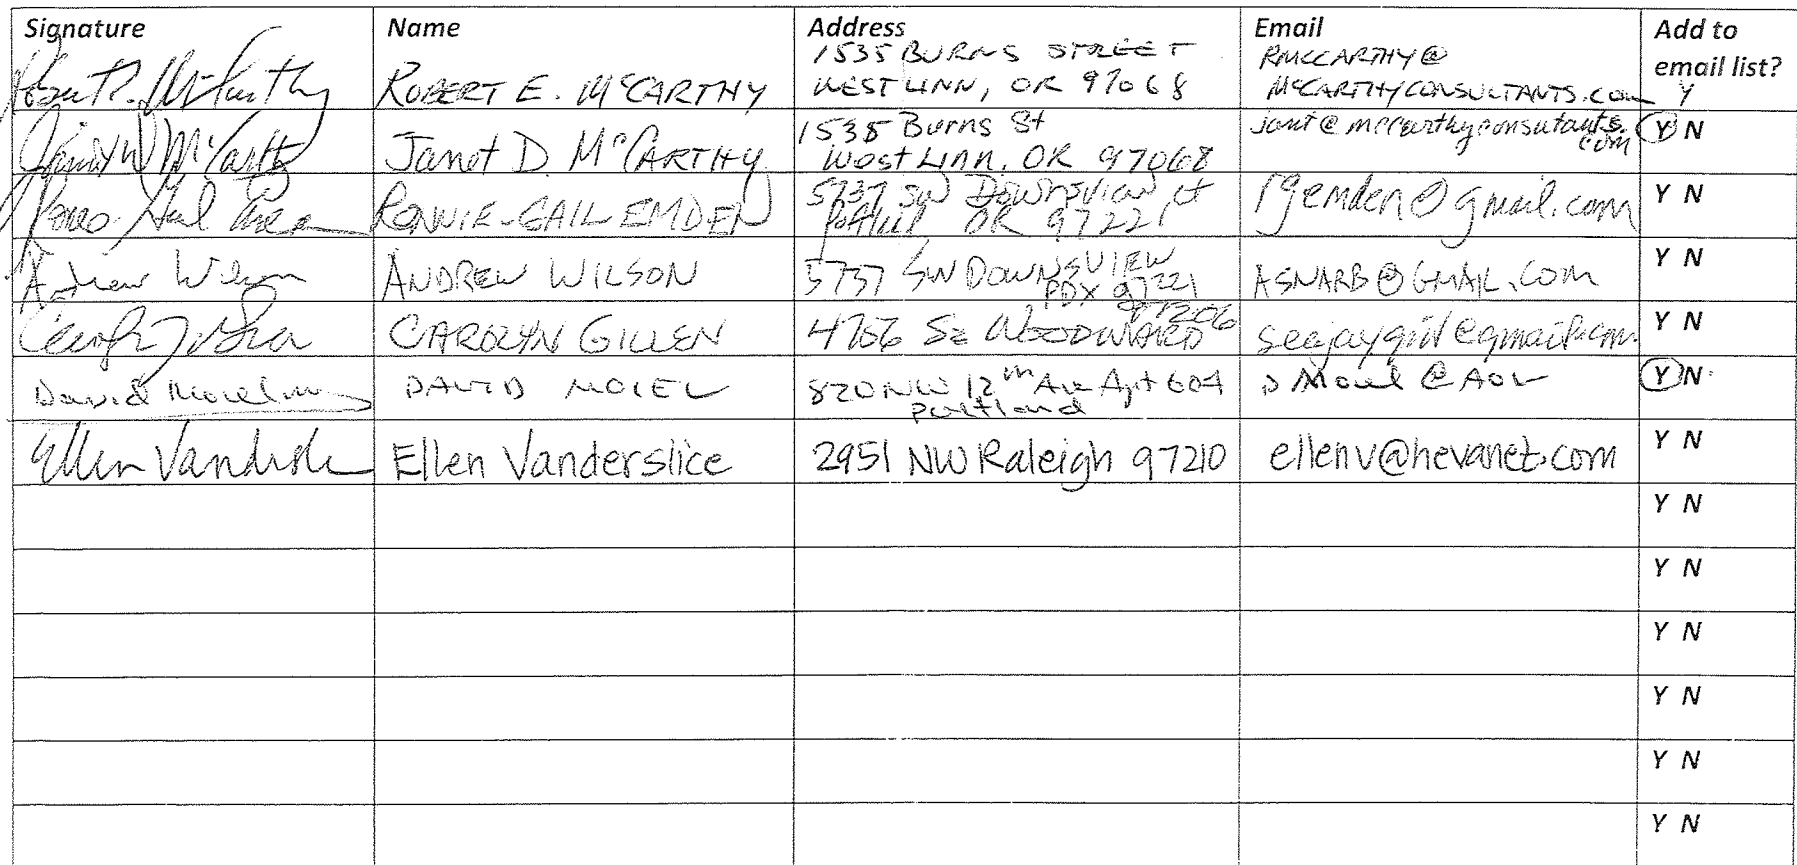 Signature Name Address Email Add to email list?
ROBERT E. McCARTHY 1535 BURNS STREET WEST LINN, OR 97068 RMCCARTHY@ MCCARTHYCONSULTANTS.com Y
Janet D. McCARTHY 1535 Burns St West Linn, OR 97068 janet@mccarthyconsutants.com Y N
RONNIE-GAIL EMDEN 5737 SW Downsview Ct OR 97221 rgemden@gmail.com Y N
Andrew Wilson ANDREW WILSON 5737 SW DOWNSVIEW PDX 97221 ASNARB@GMAIL.COM Y N
CAROLYN GILLEN SE WOODWARD 97206 Y N
David DAVID MOIEL 820 NW 12th Ave Apt 604 Portland D Moiel @ AOL Y N
Ellen Ellen Vanderslice 2951 NW Raleigh 97210 ellenv@hevanet.com Y N
Y N
Y N
Y N
Y N
Y N
Y N